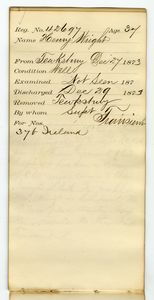 Reg. No. 42697 Age. 37
Name Henry Wright
From Tewksbury Dec 27 1873
Condition Well
Examined Not Seen 187
Discharged Dec 29 1873
Removed Tewksbury
By whom Supt
For Nos. Transient
376 Ireland